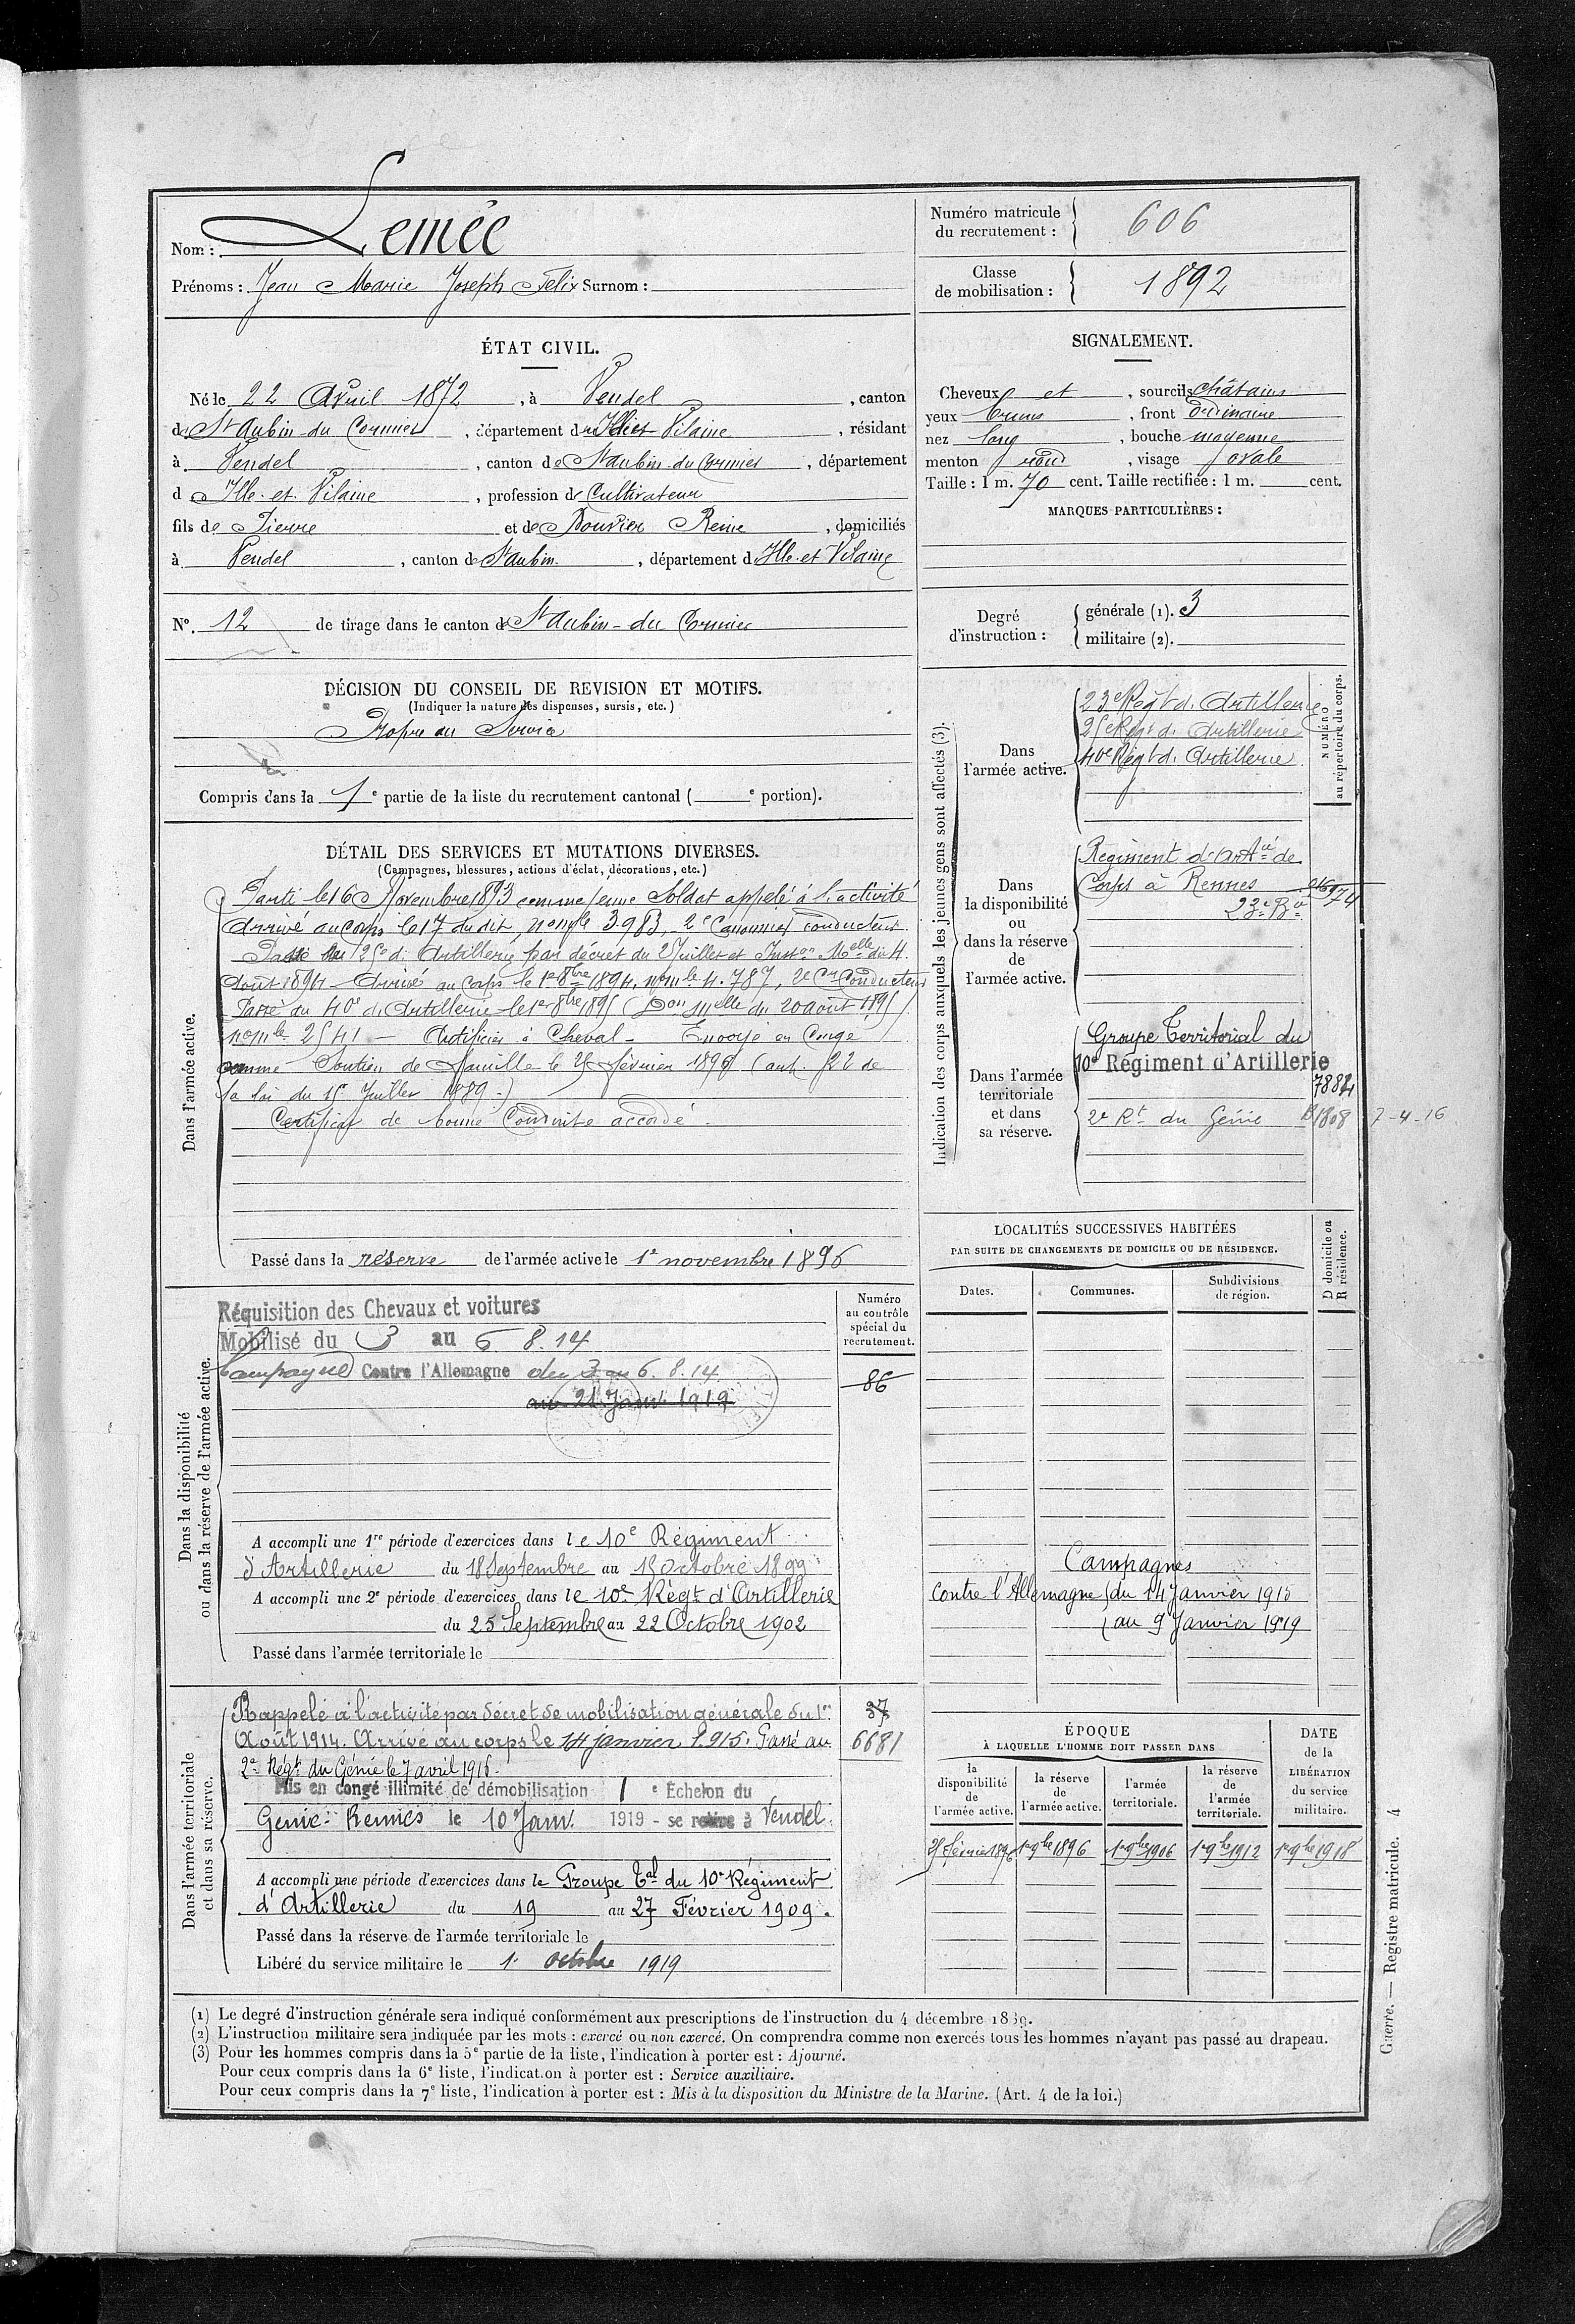 Nom : Lemée
Prénoms : Jean Marie Joseph Felix Surnom :
Numéro matricule du recrutement : 606
Classe de mobilisation : 1892
ÉTAT CIVIL.
Né le 22 Avril 1872, à Vendel, canton
de St Aubin du Cormier, département d'Ille et Vilaine, résidant
à Vendel, canton de St aubin du Cormier, département
d Ille et Vilaine, profession de Cultivateur
fils de Pierre et de Bouvier Reine, domiciliés
à Vendel, canton de St aubin, département d Ille et Vilaine
No. 12 de tirage dans le canton de St Aubin-du Cormier
SIGNALEMENT.
Cheveux et, sourcils châtains
yeux bruns, front ordinaire
nez long, bouche moyenne
menton rond, visage ovale
Taille : 1 m. 70 cent. Taille rectifiée : 1 m. cent.
MARQUES PARTICULIÈRES :
Degré d'instruction : générale (1). 3
militaire (2).
DÉCISION DU CONSEIL DE REVISION ET MOTIFS.
(Indiquer la nature des dispenses, sursis, etc.)
Propre au Service
Compris dans la 1e partie de la liste du recrutement cantonal ( e portion).
DÉTAIL DES SERVICES ET MUTATIONS DIVERSES.
(Campagnes, blessures, actions d'éclat, décorations, etc.)
Dans l'armée active.
Parti le 16 Novembre 1893 comme jeune Soldat appelé à l'activité
Arrivé au corps le 17 du dit, no mle 3983, 2e Canonnier conducteur.
Passé au 25e d'Artillerie par décret du 2 Juillet et Inston Melle du 4
Août 1894 - Arrivé au corps le 1er 8bre 1894, no mle 4.787, 2e Cr Conducteur
Passé au 40e d'Artillerie le 1er 8bre 1895 (Don Melle du 20 août 1895)
no mle 2541 - Artificier à Cheval - Envoyé en Congé
comme Soutien de Famille le 25 février 1896 (art. 22 de
la loi du 15 Juillet 1889.)
Certificat de bonne Conduite accordé.
Passé dans la réserve de l'armée active le 1er novembre 1896
Indication des corps auxquels les jeunes gens sont affectés (3).
NUMÉRO au répertoire du corps.
Dans l'armée active.
23e Régt d'Artillerie
25e Régt d'Artillerie
40e Régt d'Artillerie
Dans la disponibilité ou dans la réserve de l'armée active.
Régiment d'Artie de
Corps à Rennes
23e Bie
Dans l'armée territoriale et dans sa réserve.
Groupe Territorial du
10e Régiment d'Artillerie
2e Rt du Génie 7-4-16
LOCALITÉS SUCCESSIVES HABITÉES
PAR SUITE DE CHANGEMENTS DE DOMICILE OU DE RÉSIDENCE.
Dates. Communes. Subdivisions de région. D domicile ou R résidence.
Campagnes
Contre l'Allemagne (du 14 Janvier 1915
(au 9 Janvier 1919
Dans la disponibilité ou dans la réserve de l'armée active.
Numéro au contrôle spécial du recrutement.
Réquisition des Chevaux et voitures
Mobilisé du 3 au 6 8.14
Campagne Contre l'Allemagne du 3 au 6. 8. 14
au 21 Janv. 1919
86
A accompli une 1re période d'exercices dans le 10e Régiment
d'Artillerie du 18 Septembre au 15 Octobre 1899
A accompli une 2e période d'exercices dans le 10e Régt d'Artillerie
du 25 Septembre au 22 Octobre 1902
Passé dans l'armée territoriale le
Dans l'armée territoriale et dans sa réserve.
Rappelé à l'activité par décret de mobilisation générale du 1er
Août 1914. Arrivé au corps le 14 janvier 1915. Passé au
2e Régt du Génie le 7 avril 1916.
37
6681
Mis en congé illimité de démobilisation 1e Échelon du
Génie Rennes le 10 Janv. 1919 - se retire à Vendel.
A accompli une période d'exercices dans le Groupe Tal du 10e Régiment
d'Artillerie du 19 au 27 Février 1909.
Passé dans la réserve de l'armée territoriale le
Libéré du service militaire le 1er octobre 1919
ÉPOQUE À LAQUELLE L'HOMME DOIT PASSER DANS
la disponibilité de l'armée active. la réserve de l'armée active. l'armée territoriale. la réserve de l'armée territoriale. DATE de la LIBÉRATION du service militaire.
25 février 1896 1er 9bre 1896 1er 9bre 1906 1er 9bre 1912 1er 9bre 1918
(1) Le degré d'instruction générale sera indiqué conformément aux prescriptions de l'instruction du 4 décembre 1889.
(2) L'instruction militaire sera indiquée par les mots : exercé ou non exercé. On comprendra comme non exercés tous les hommes n'ayant pas passé au drapeau.
(3) Pour les hommes compris dans la 5e partie de la liste, l'indication à porter est : Ajourné.
Pour ceux compris dans la 6e liste, l'indication à porter est : Service auxiliaire.
Pour ceux compris dans la 7e liste, l'indication à porter est : Mis à la disposition du Ministre de la Marine. (Art. 4 de la loi.)
Guerre. — Registre matricule. 4